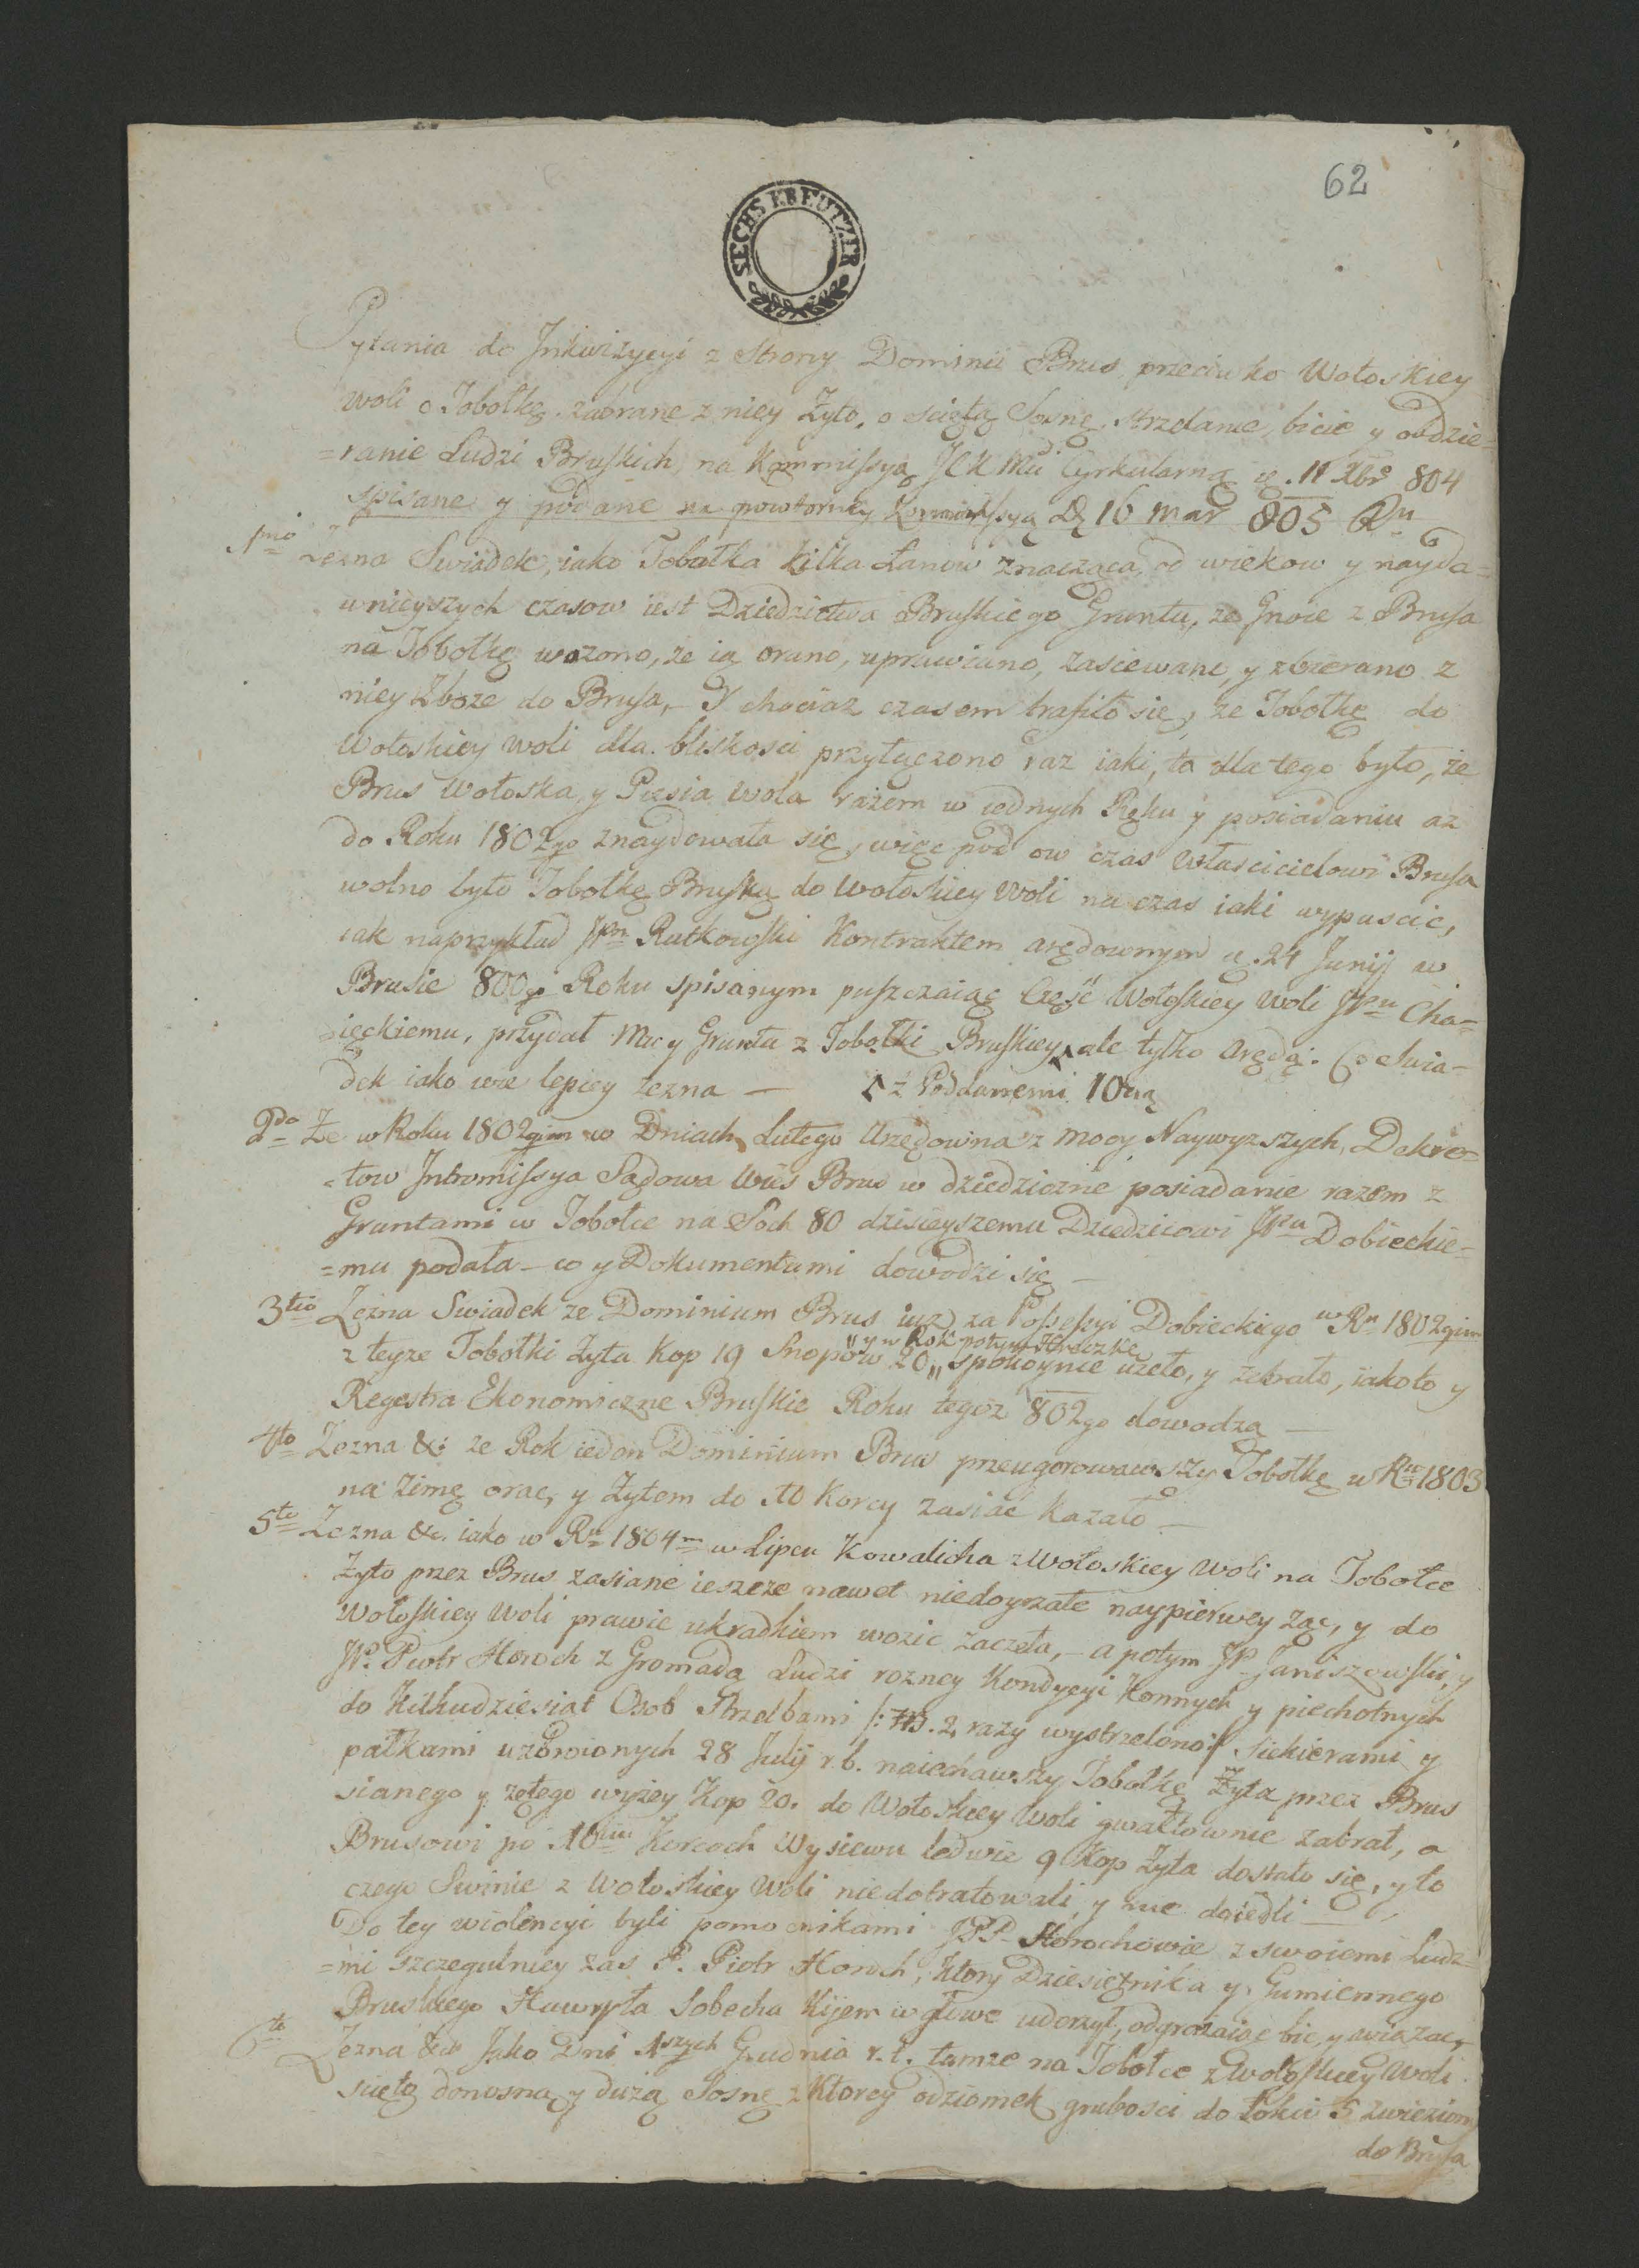 62
SECHS KREUTZER
Pytania do Inkwizycyi z Strony Dominii Brus przeciwko Wołoskiey
Woli o Tobołkę zabrane z niey Żyto, o sciętą Sosnę, strzelanie, bicie y obdzie=
=ranie Ludzi Bruskich, na Kommissyą Cyrkularną d. 11 Xbr 804
spisane y podane na powtorney Kommissyą D 16 mar 805 Ru
1mo Zezna Swiadek, iako Tobołka kilka Łanow znacząca od wiekow y nayda=
wnieyszych czasow iest Dziedzictwa Bruskiego Gruntu, ze Gnoie z Brusa
na Tobołkę wozono, ze ią orano, uprawiano, zasiewano, y zbierano z
niey Zboze do Brusa, – Y chociaz czasem trafiło się, ze Tobołkę do
Wołoskiey Woli dla bliskosci przyłączono raz iaki, to dla tego było, ze
Brus Wołoska, y Piesia Wola razem w iednych Ręku y posiadaniu az
do Roku 1802go znaydowała się, więc pod ow czas Własciicielowi Brusa
wolno było Tobołkę Bruską do Wołoskiey Woli na czas iaki wypuscic,
iak naprzykład JPan Rutkowski Kontraktem arędownym d. 24 Junij w
Brusie 800go Roku spisanym puszczaiąc Część Wołoskiey Woli JPu Cho=
ięckiemu, przydał Mu y Grunta z Tobołki Bruskiey, ale tylko Arędą. Co Swia=
dek iako wie lepiey zezna – z Poddanemi 10cią
2do Ze w Roku 1802gim w Dniach Lutego Urzędowna z mocy Naywyzszych Dekre=
=tow Intromissya Sądowa Wieś Brus w dziedziczne posiadanie razem z
Gruntami w Tobołce na Soch 80 dzisieyszemu Dziedzicowi JPu Dobieckie=
=mu podała – co y Dokumentami dowodzi się –
3tio Zezna Swiadek ze Dominium Brus iuz za Possessyi Dobieckiego w Ru 1802gim
y w Rok potym Hreczkę
z teyze Tobołki Żyta Kop 19 Snopów 20 spokoynie uzeło, y zebrało, iako to y
Regestra Ekonomiczne Bruskie Roku tegoz 802go dowodzą –
4to Zezna &c ze Rok ieden Dominium Brus przeugorowawszy Tobołkę w Ru 1803
na Zimę orac, y Żytem do 10 Korcy zasiać kazało –
5to Zezna &c. iako w Ru 1804m w Lipcu Kowalicha z Wołoskiey Woli na Tobołce
Żyto przez Brus zasiane ieszcze nawet niedoyrzałe naypierwey ząc, y do
Wołoskiey Woli prawie ukradkiem wozic zaczeła, – a potym JP. Janiszewski, y
JP. Piotr Horoch z Gromadą Ludzi rozney Kondycyi Konnych y piechotnych
do Kilkudziesiąt Osob Strzelbami /: 2 razy wystrzelono :/ siekierami y
pałkami uzbroionych 28 Julij r. b. naiechawszy Tobołkę Żyta przez Brus
sianego y zętego wyzey Kop 20. do Wołoskiey Woli gwałtownie zabrał, a
Brusowi po 10ciu Korcach Wysiewu ledwie 9 Kop Żyta dostało się, y to
czego Swinie z Wołoskiey Woli niedotratowali y nie doiedli –
Do tey wiolencyi byli pomocnikami JPP. Horochowie z swoiemi Ludz=
=mi szczegulniey zas P. Piotr Horoch, ktory Dziesiętnika y Gumiennego
Bruskiego Hawryła Sobecha Kijem w głowe uderzył, odgrazaiąc bic, y wiązac, –
6to Zezna &c Jako Dni 1szych Grudnia r. t. tamze na Tobołce z Wołoskiey Woli
scięto donosną y duzą Sosnę z ktorey odziomek grubosci do łokci 5 zwieziono
do Brusa